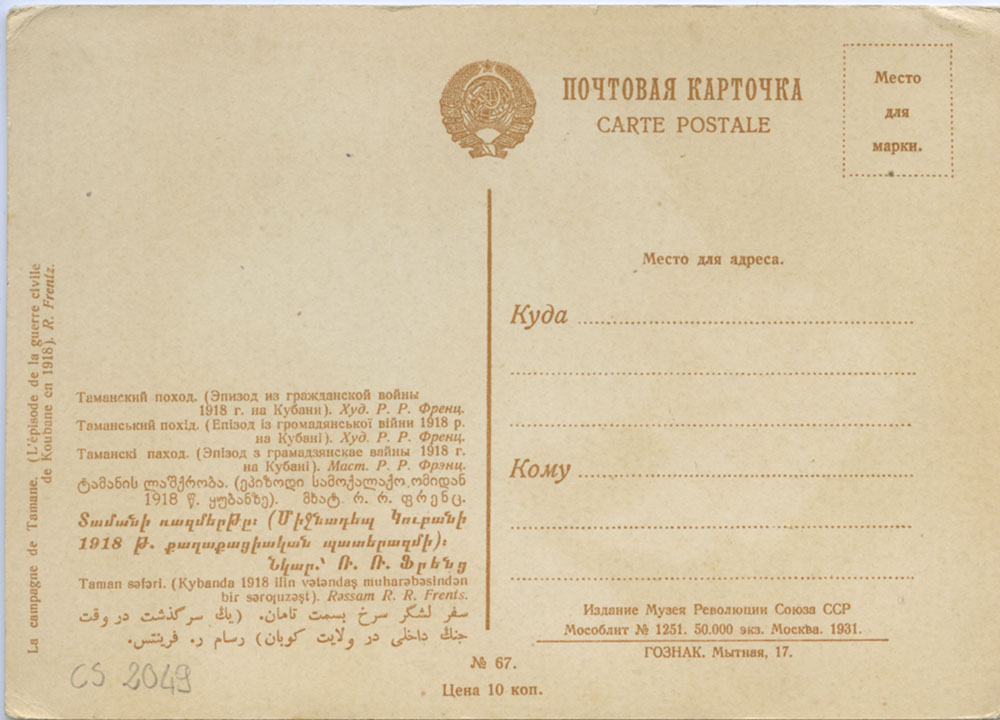 ПОЧТОВАЯ КАРТОЧКА
CARTE POSTALE
Место
для
марки.
Место для адреса.
Куда
Кому
La campagne de Tamane. (L'épisode de la guerre civile
de Koubane en 1918). R. Frentz.
Таманский поход. (Эпизод из гражданской войны
1918 г. на Кубани). Худ. Р. Р. Френц.
Таманський похід. (Епізод із громадянської війни 1918 р.
на Кубані). Худ. Р. Р. Френц.
Таманскі паход. (Эпізод з грамадзянскае вайны 1918 г.
на Кубані). Маст. Р. Р. Фрэнц.
ტამანის ლაშქრობა. (ეპიზოდი სამოქალაქო ომიდან
1918 წ. ყუბანზე). მხატ. რ. რ. ფრენც.
Տամանի ռազմերթը։ (Միջնադեպ Կուբանի
1918 թ. քաղաքացիական պատերազմի)։
Նկար.՝ Ռ. Ռ. Ֆրենց
Taman səfəri. (Kybanda 1918 ilin vətəndaş muharəbəsindən
bir sərquzəşt). Rəssam R. R. Frents.
سفر لشگر سرخ بسمت تامان. (یك سرگذشت در وقت
جنگ داخلی در ولایت کوبان) رسام ر. فرینتس.
Издание Музея Революции Союза ССР
Мособлит № 1251. 50.000 экз. Москва. 1931.
ГОЗНАК. Мытная, 17.
№ 67.
Цена 10 коп.
CS 2049